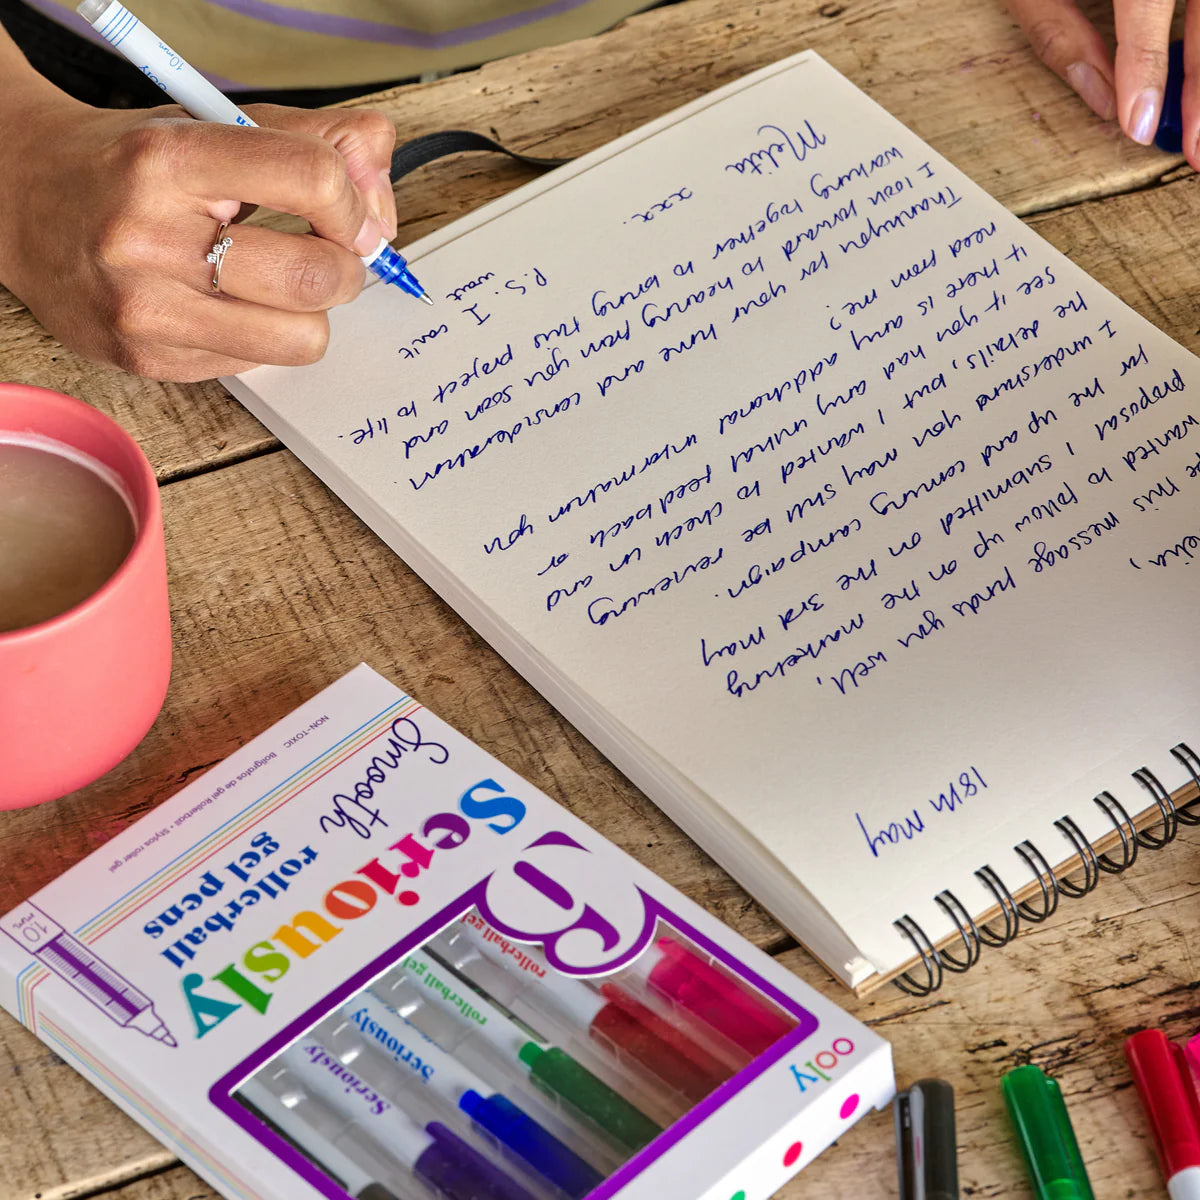 18th May
this message finds you well,
wanted to follow up on the marketing
proposal I submitted on the 3rd May
for the up and coming campaign.
I understand you may still be reviewing
the details, but I wanted to check in and
see if you had any initial feedback or
if there is any additional information you
need from me?
Thankyou for your time and consideration.
I look forward to hearing from you soon and
working together to bring this project to life.
Melita
xxx.
P.S. I can't
wait
ooly
10mm
ooly
6
Seriously
Smooth
rollerball
gel pens
NON-TOXIC Bolígrafos de gel Rollerball • Stylos roller gel
10
mm
rollerball gel
rollerball gel
Seriously
Seriously